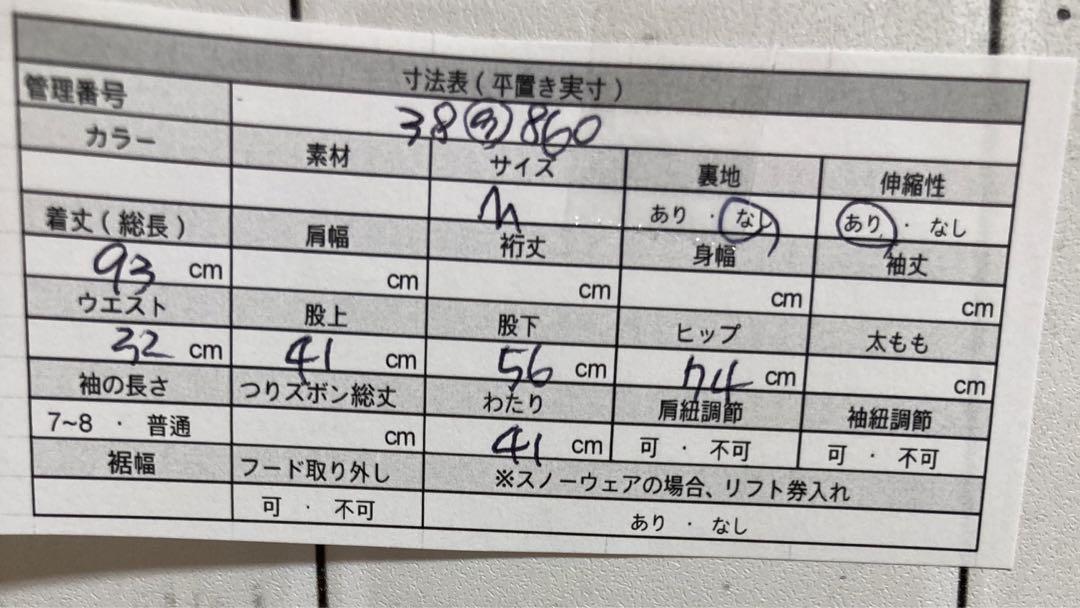 寸法表(平置き実寸)
管理番号 38㋱860
カラー 素材 サイズ 裏地 伸縮性
M あり ・ なし あり ・ なし
着丈(総長) 肩幅 裄丈 身幅 袖丈
93 cm cm cm cm cm
ウエスト 股上 股下 ヒップ 太もも
32 cm 41 cm 56 cm 74 cm cm
袖の長さ つりズボン総丈 わたり 肩紐調節 袖紐調節
7~8 ・ 普通 cm 41 cm 可 ・ 不可 可 ・ 不可
裾幅 フード取り外し ※スノーウェアの場合、リフト券入れ
可 ・ 不可 あり ・ なし